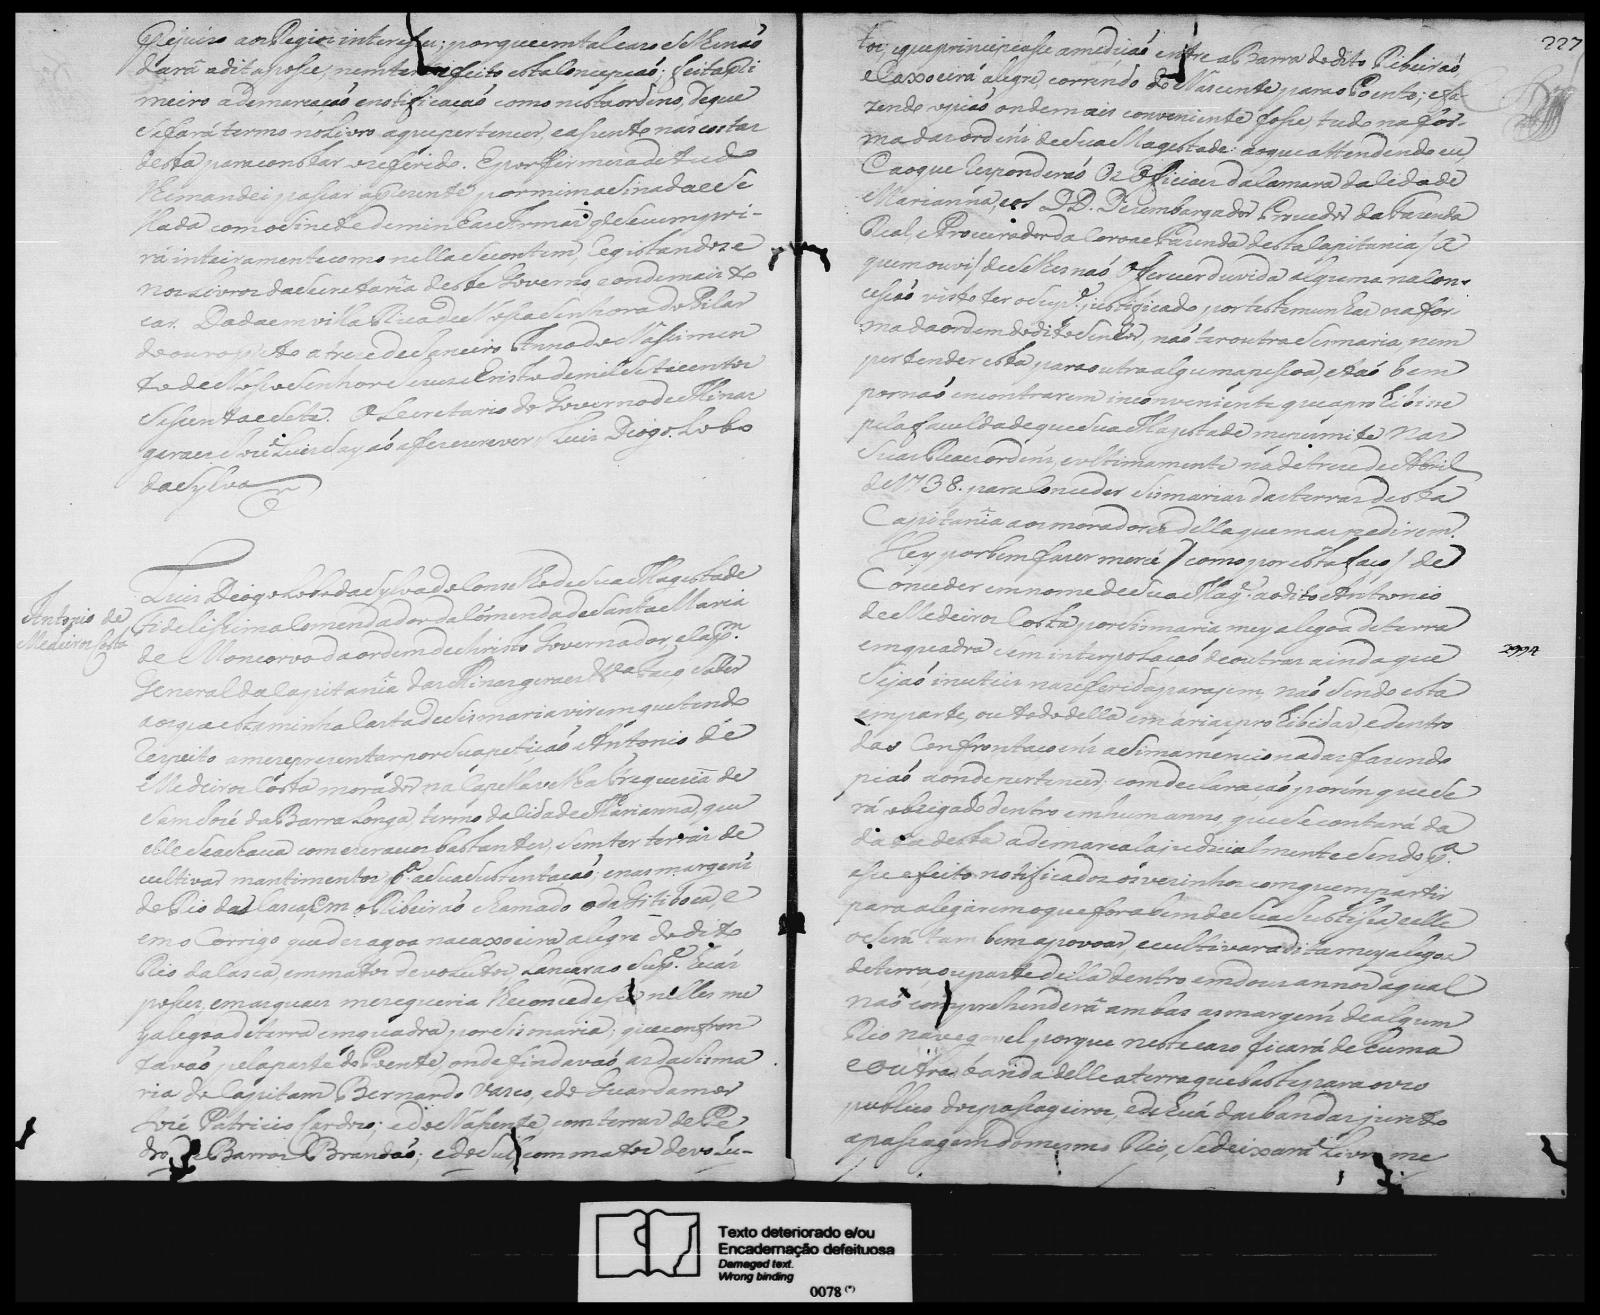 Prejuizo aos Regios interesses; porque em tal caso se lhe naõ
dará a dita posse, nem terá effeito esta Concepçaõ; feita pri
meiro a demarcaçaõ e notificaçaõ como nesta ordeno, de que
se fará termo no Livro a que pertencer, e assento nas costas
desta para constar o referido. E por firmeza de tudo
lhe mandei passar a prezente por mim asinada e se
llada com o sinete de minhas Armas q̃ se cumpri-
rá inteiramente como nella se contem, registandose
nos Livros da Secretaria deste Governo e onde mais to
car. Dada em villa Rica de Nossa Senhora do Pilar
do ouro preto a treze de Janeiro Anno do Nassimen
to de Nosso Senhor Jesus Christo de mil Setecentos
Sessenta e Sete. O Secretario do Governo de Minas
geraes José Luis Sayaõ a fez escrever. Luis Diogo Lobo
da Sylva
Antonio de
Medeiros Costa
Luis Diogo Lobo da Sylva do Conselho de Sua Magestade
Fidelissima Comendador da Comenda de Santa Maria
de Moncorvo da ordem de Christo Governador, e Capp.m
General da Capitania das Minas geraes Vª Faço saber
aos que esta minha Carta de Sismaria virem que tendo
respeito a me reprezentar por sua petiçaõ Antonio de
Medeiros Costa morador na Freguezia de
Sam José da Barra Longa, termo da Cidade Marianna, que
elle se achava com escravos bastantes, sem ter terras de
cultivar mantimentos p.ª a sua sustentaçaõ; e nas margens
do Rio da Casca, em o Ribeiraõ chamado o da Gitiboca, e
em o Corrigo que desagoa na caxoeira alegre do dito
Rio da Casca, em mattos devolutos, Lançara o Sup.e huãs
posses, em as quaes me requeria lhe concedesse nelles me
ya legoa de terra em quadra por Sismaria; que confron
tavaõ pela parte do Poente, onde findavaõ as da Sisma
ria do Capitam Bernardo Vasco, e do Guarda mor
José Patricio Sardozo; e do Nassente, com terras de Pe
dro de Barros Brandaõ; e do Sul com mattos devolu-
227
tos; e que principiasse a mediçaõ entre a Barra do dito Ribeiraõ,
e Caxoeira alegre, correndo do Nascente para o Poente; e fa
zendo o piaõ onde mais conveniente fosse tudo na for-
ma das ordens de Sua Magestade: ao que attendendo eu,
e ao que responderaõ os Officiaes da Camara da Cidade
Marianna, e os D.D. Dezembargador Provedor da Fazenda
Real, e Procurador da Coroa e Fazenda desta Capitania / a
quem ouvi / de se lhes naõ offerecer duvida alguma na Con-
cessaõ visto ter o Sup.e justificado por testemunhas na for
ma da ordem do dito Senhor, naõ ter outra Sesmaria, nem
pertender esta para outra alguma pessoa, e taõ bem
por naõ encontrarem inconveniente que a prohibisse
pela faculdade que Sua Magestade me permite nas
Suas Reaes ordens, e ultimamente na de treze de Abril
de 1738. para Conceder Sismarias das terras desta
Capitania aos moradores della que mas pedirem.
Hey por bem fazer mercê / como por esta faço / de
Conceder em nome de Sua Mag.e ao dito Antonio
de Medeiros Costa por Sismaria meya legoa de terra
em quadra sem interpolaçaõ de outras ainda que
sejaõ inuteis na referida paragem, naõ sendo esta
em parte, ou todo della em arias prohibidas, e dentro
das Confrontacoens asima mencionadas fazendo
piaõ aonde pertencer, com declaraçaõ porém que se
rá obrigado dentro em hum anno, que se contará da
data desta a demarcala judicialmente sendo p.ª
esse effeito notificados os vezinhos com quem partir
para alegarem o que for a bem de sua Justiça; e elle
o será tambem a povoar, e cultivar a dita meya legoa
de terra, ou parte della dentro em dous annos a qual
naõ comprehenderá ambas as margens de algum
Rio navegavel porque neste caso ficará de huma
e outra banda delle a terra que baste para o uzo
publico dos passageiros, e de huã das bandas junto
a passagem do mesmo Rio, se deixará Livre me
2994
Texto deteriorado e/ou
Encadernação defeituosa
Damaged text.
Wrong binding
0078 (*)